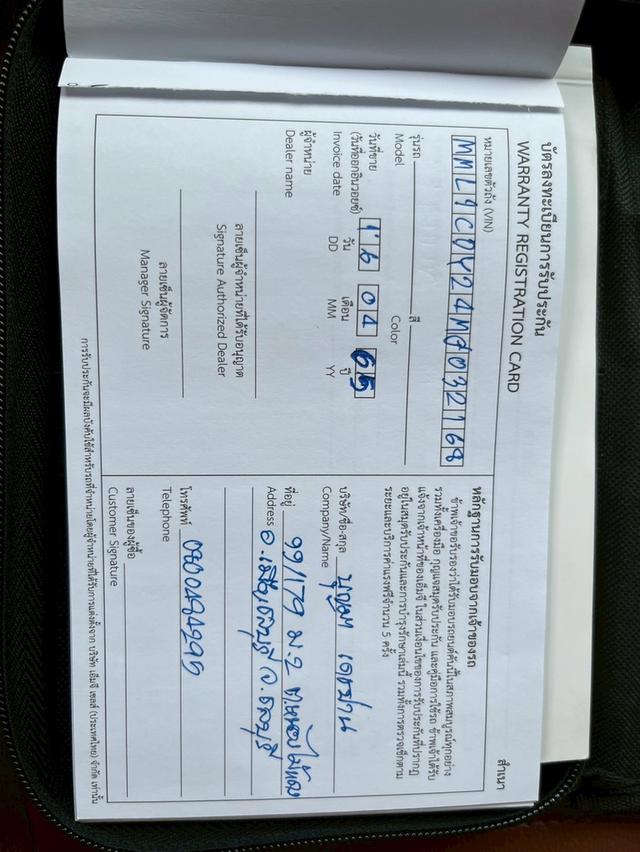 สำเนา
บัตรลงทะเบียนการรับประกัน
WARRANTY REGISTRATION CARD
หมายเลขตัวถัง (VIN)
รุ่นรถ สี
Model Color
วันที่ขาย 16 04 65
(วันที่ออกอินวอยซ์) วัน เดือน ปี
Invoice date DD MM YY
ผู้จำหน่าย
Dealer name
ลายเซ็นผู้จำหน่ายที่ได้รับอนุญาต
Signature Authorized Dealer
ลายเซ็นผู้จัดการ
Manager Signature
หลักฐานการรับมอบจากเจ้าของรถ
ข้าพเจ้าขอรับรองว่าได้รับมอบรถยนต์คันนี้ในสภาพสมบูรณ์ทุกอย่าง
รวมทั้งเครื่องมือ กุญแจสมุดรับประกัน และคู่มือการใช้รถ ข้าพเจ้าได้รับ
แจ้งจากเจ้าหน้าที่ของเอ็มจี ในส่วนเงื่อนไขของการรับประกันที่ปรากฏ
อยู่ในสมุดรับประกันและการบำรุงรักษาเล่มนี้ รวมทั้งการตรวจเช็กตาม
ระยะและบริการค่าแรงฟรีจำนวน 5 ครั้ง
บริษัท/ชื่อ-สกุล
Company/Name
ที่อยู่ 99/179 ม.2 ต.หนองไม้แดง
Address อ.เมืองชลบุรี จ.ชลบุรี
โทรศัพท์
Telephone
ลายเซ็นของผู้ซื้อ
Customer Signature
การรับประกันจะมีผลบังคับใช้สำหรับรถที่จำหน่ายโดยผู้จำหน่ายที่ได้รับการแต่งตั้งจาก บริษัท เอ็มจี เซลส์ (ประเทศไทย) จำกัด เท่านั้น